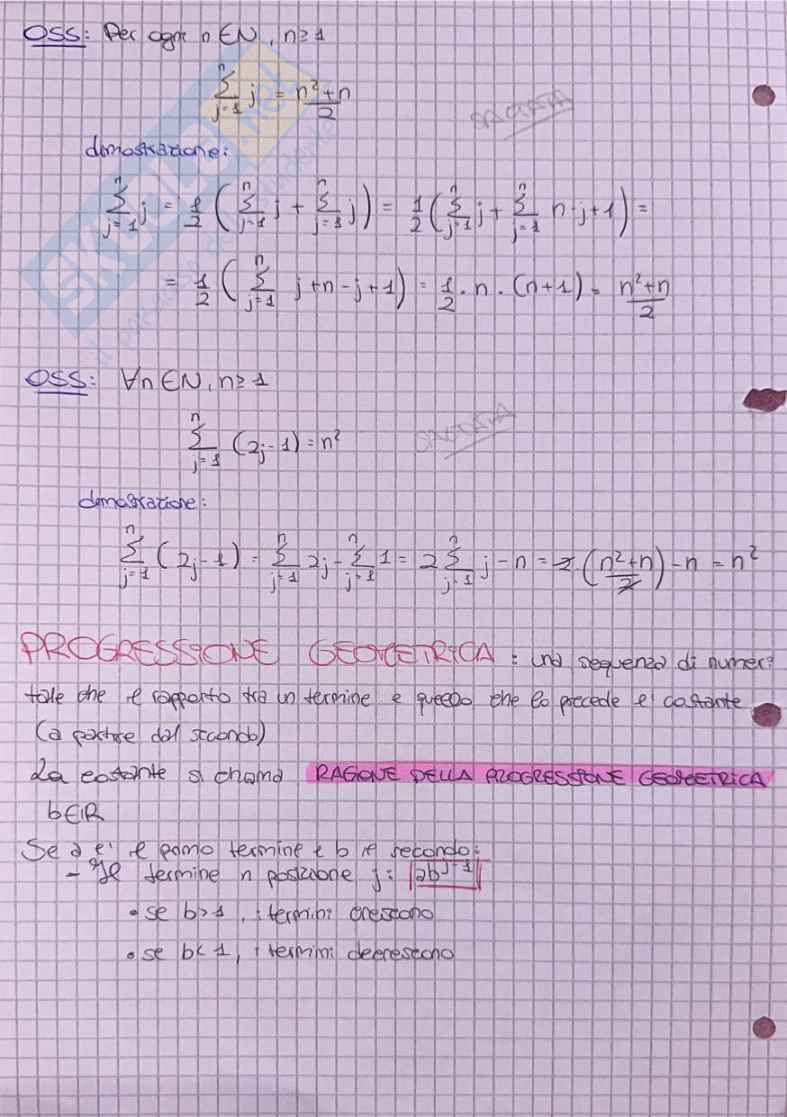 OSS: Per ogni n ∈ N, n ≥ 1
n∑j=1 j = n²+n/2
dimostrazione:
n∑j=1 j = 1/2 ( n∑j=1 j + n∑j=1 j ) = 1/2 ( n∑j=1 j + n∑j=1 n-j+1 ) =
= 1/2 ( n∑j=1 j+n-j+1 ) = 1/2 · n · (n+1) = n²+n/2
OSS: ∀n ∈ N, n ≥ 1
n∑j=1 (2j-1) = n²
dimostrazione:
n∑j=1 (2j-1) = n∑j=1 2j - n∑j=1 1 = 2 n∑j=1 j - n = 2 · (n²+n/2) - n = n²
PROGRESSIONE GEOMETRICA: una sequenza di numeri
tale che il rapporto tra un termine e quello che lo precede e' costante
(a partire dal secondo)
La costante si chiama RAGIONE DELLA PROGRESSIONE GEOMETRICA
b∈R
Se a e' il primo termine e b il secondo:
- Il termine n posizione j: ab^j-1
• se b>1, i termini crescono
• se b<1, i termini decrescono
skuola.net